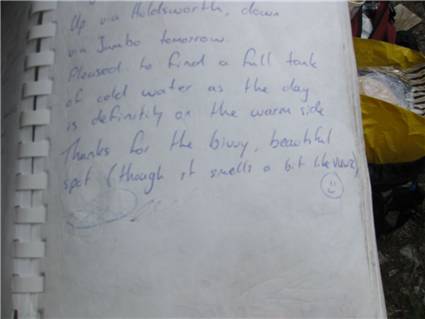 Up via Holdsworth, down
via Jumbo tomorrow.
Pleased to find a full tank
of cold water as the day
is definitly on the warm side
Thanks for the bivvy, beautiful
spot (though it smells a bit like